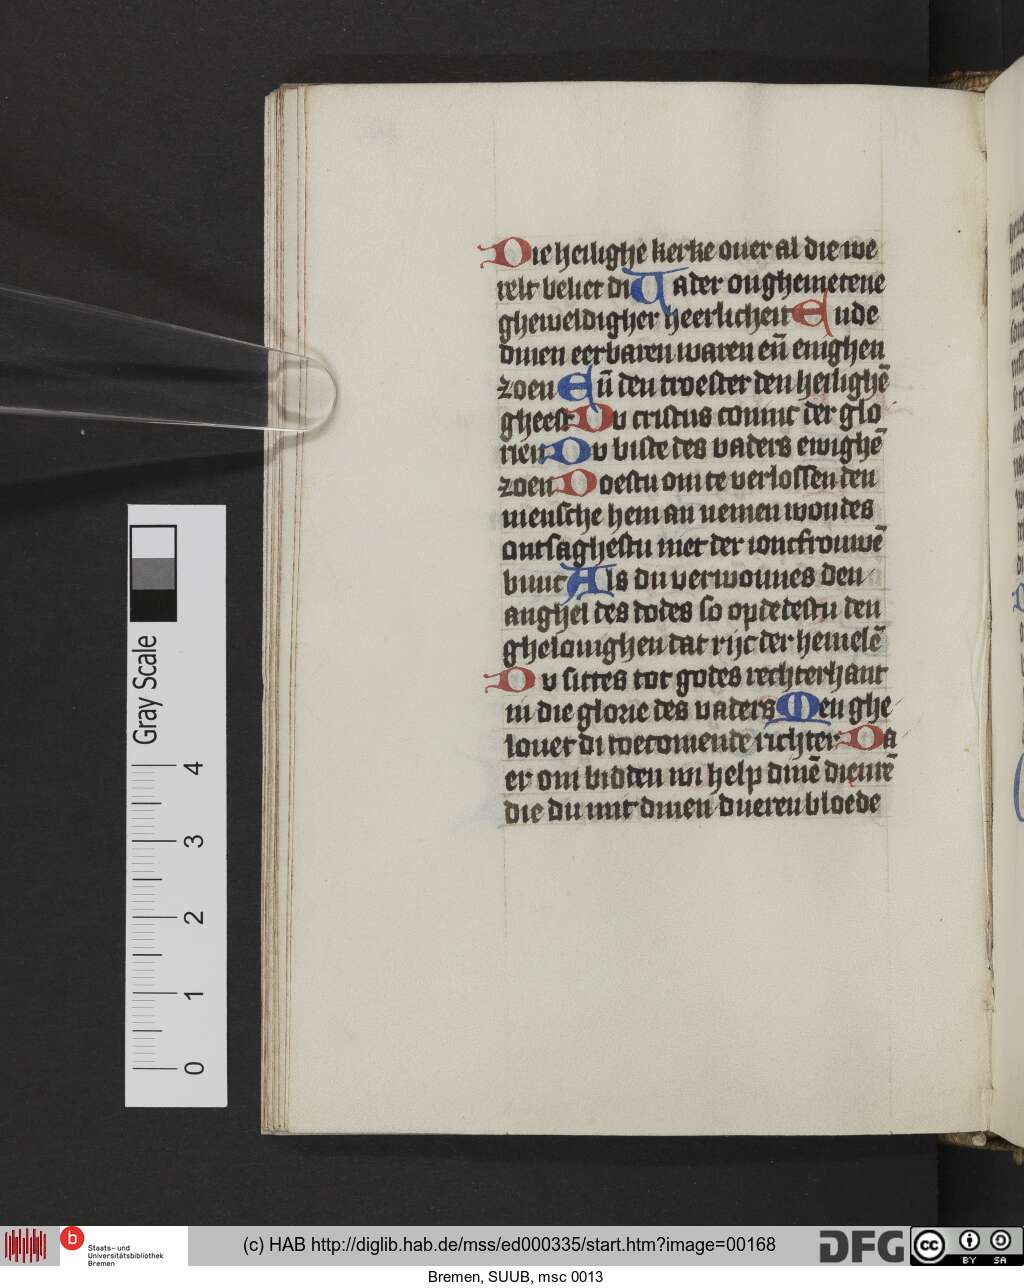 Die heilighe kerke ouer al die we
relt beliet di Uader onghemetene
gheweldigher heerlicheit Ende
dinen eerbaren waren eñ enighen
zoen Eñ den troester den heilighē
gheest Du cristus coninc der glo
rien Du biste des vaders ewighē
zoen Doestu om te verlossen den
mensche hem an nemen woudes
ontsaghestu niet der ioncfrouwē
buuc Als du verwonnes den
anghel des dodes so opdedestu den
ghelouighen dat rijc der hemelē
Du sittes tot godes rechterhant
in die glorie des vaders Men ghe
louet di toecomende richter Da
er om bidden wi help dinē dienrē
die du mit dinen dueren bloede
Gray Scale
4
3
2
1
0
b
Staats- und
Universitätsbibliothek
Bremen
(c) HAB http://diglib.hab.de/mss/ed000335/start.htm?image=00168
DFG
cc
BY SA
Bremen, SUUB, msc 0013